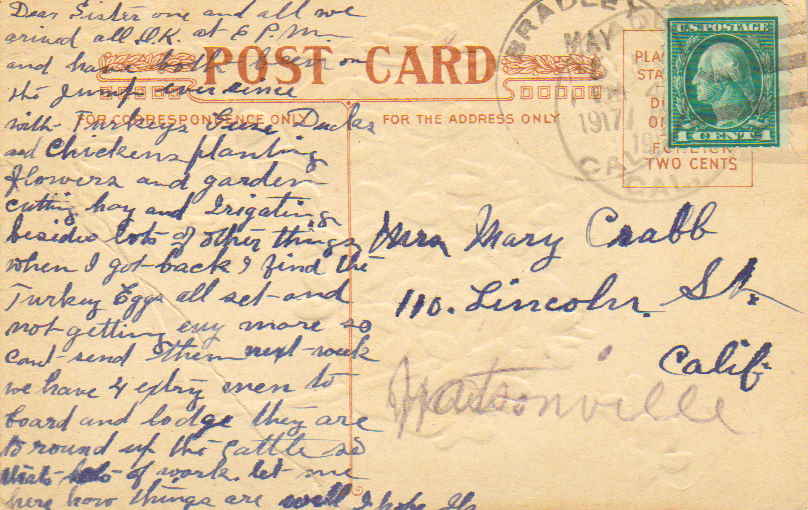 Dear Sister one and all we
arived all O.K. at 6 P.M.
and have both been on
the Jump ever since
with Turkeys Geese Ducks
and Chickens planting
flowers and garden
cutting hay and Irigating
besides lots of other things
when I got back I find the
Turkey Eggs all set and
not getting eny more so
cant send them next week
we have 4 extry men to
board and lodge they are
to round up the cattle so
thats lots of work. let me
here how things are well I hope
POST CARD
FOR CORRESPONDENCE ONLY
FOR THE ADDRESS ONLY
BRADLEY
MAY
1917
CAL.
U.S. POSTAGE
1 CENT 1
TWO CENTS
Mrs Mary Crabb
110. Lincoln. St.
Calif
Watsonville